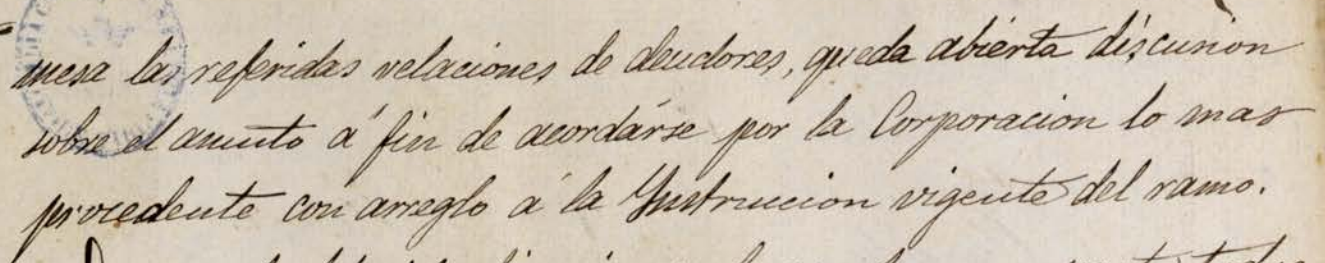 mesa las referidas relaciones de deudores, queda abierta discusion
sobre el asunto á fin de acordarse por la Corporacion lo mas
procedente con arreglo á la Instruccion vigente del ramo.